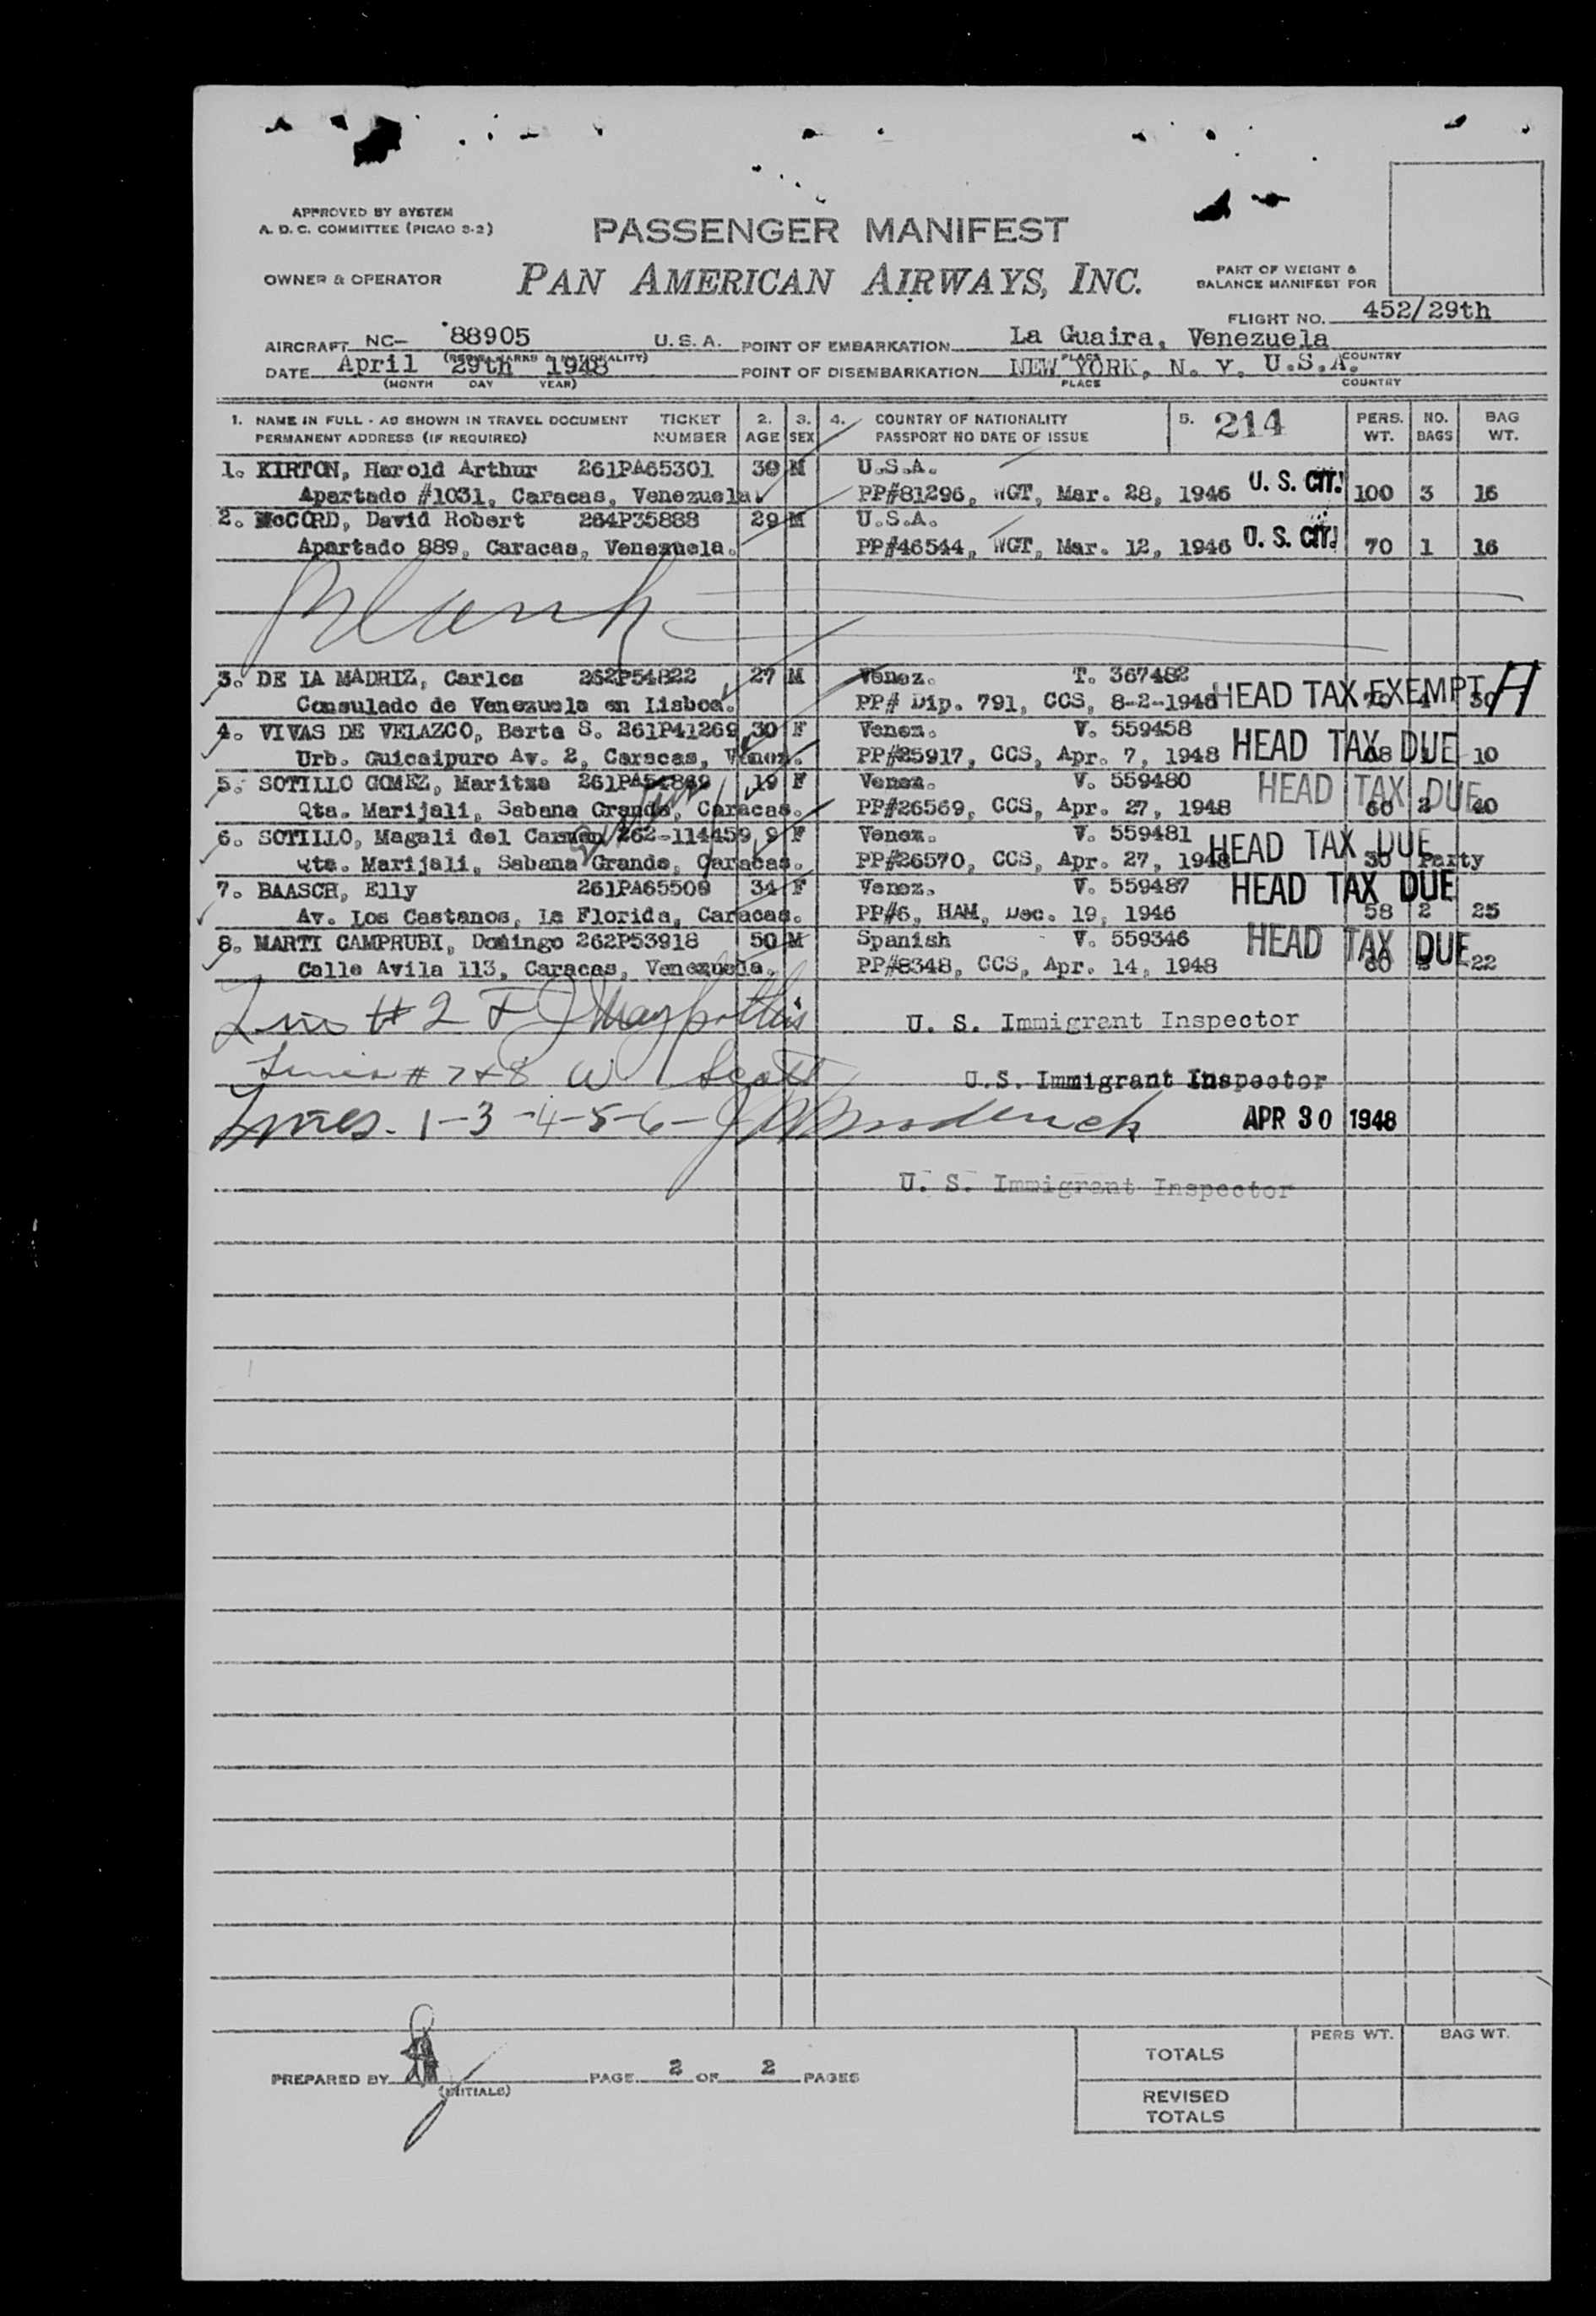 APPROVED BY SYSTEM
A. D. C. COMMITTEE (PICAO S-2)
PASSENGER MANIFEST
OWNER & OPERATOR
PAN AMERICAN AIRWAYS, INC.
PART OF WEIGHT &
BALANCE MANIFEST FOR
FLIGHT NO. 452/29th
AIRCRAFT NC- 88905 U.S.A. POINT OF EMBARKATION La Guaira, Venezuela
PLACE COUNTRY
DATE April 29th 1948 POINT OF DISEMBARKATION NEW YORK, N. Y. U.S.A.
(MONTH DAY YEAR) PLACE COUNTRY
1. NAME IN FULL - AS SHOWN IN TRAVEL DOCUMENT TICKET 2. 3. 4. COUNTRY OF NATIONALITY 5. 214 PERS. NO. BAG
PERMANENT ADDRESS (IF REQUIRED) NUMBER AGE SEX PASSPORT NO DATE OF ISSUE WT. BAGS WT.
1. KIRTON, Harold Arthur 261PA65301 30 M U.S.A.
Apartado #1031, Caracas, Venezuela. PP#81296, WGT, Mar. 28, 1946 U. S. CIT. 100 3 16
2. McCORD, David Robert 264P35888 29 M U.S.A.
Apartado 889, Caracas, Venezuela. PP#46544, WGT, Mar. 12, 1946 U. S. CIT. 70 1 16
Blank
3. DE LA MADRIZ, Carlos 262P54822 27 M Venez. T. 367482
Consulado de Venezuela en Lisboa. PP# Dip. 791, CCS, 8-2-1948 HEAD TAX EXEMPT H
4. VIVAS DE VELAZCO, Berta S. 261P41269 30 F Venez. V. 559458
Urb. Guicaipuro Av. 2, Caracas, Venez. PP#25917, CCS, Apr. 7, 1948 HEAD TAX DUE 10
5. SOTILLO GOMEZ, Maritza 261PA54869 19 F Venez. V. 559480
Qta. Marijali, Sabana Grande, Caracas. PP#26569, CCS, Apr. 27, 1948 HEAD TAX DUE 60 2 40
6. SOTILLO, Magali del Carmen 262-114459 9 F Venez. V. 559481
Qta. Marijali, Sabana Grande, Caracas. PP#26570, CCS, Apr. 27, 1948 HEAD TAX DUE 30 Party
7. BAASCH, Elly 261PA65509 34 F Venez. V. 559487 HEAD TAX DUE
Av. Los Castanos, La Florida, Caracas. PP#6, HAM, Dec. 19, 1946 58 2 25
8. MARTI CAMPRUBI, Domingo 262P53918 50 M Spanish V. 559346 HEAD TAX DUE
Calle Avila 113, Caracas, Venezuela. PP#8348, CCS, Apr. 14, 1948 60 22
Line #2
U. S. Immigrant Inspector
Lines # 7 & 8 W Scott
U.S. Immigrant Inspector
Lines. 1-3-4-5-6- APR 30 1948
U. S. Immigrant Inspector
PERS WT. BAG WT.
TOTALS
PREPARED BY PAGE 2 OF 2 PAGES
(INITIALS)
REVISED
TOTALS